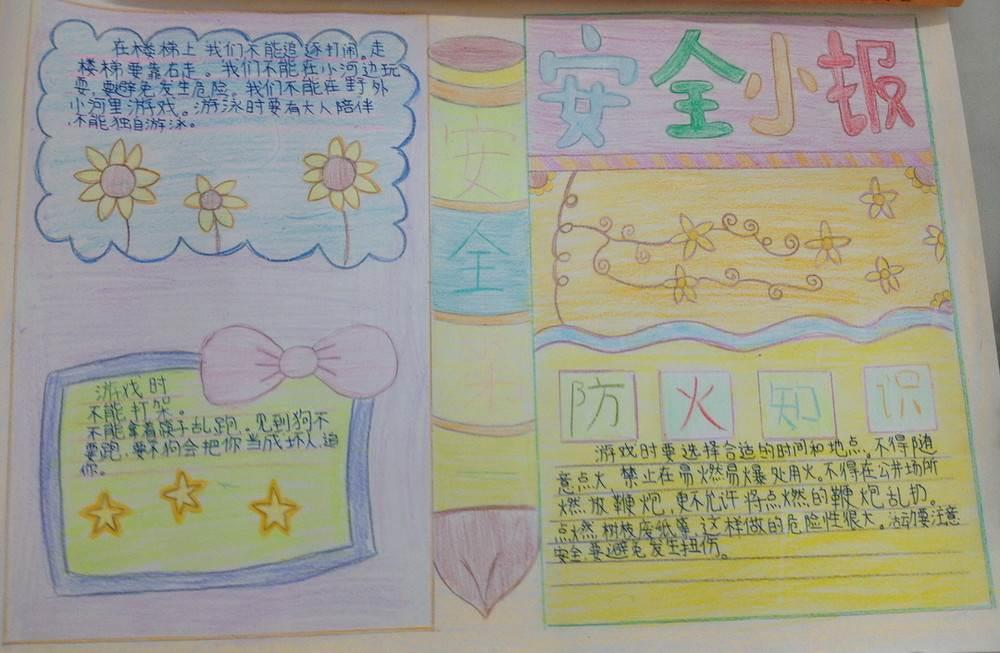 安全小报
在楼梯上我们不能追逐打闹。走
楼梯要靠右走。我们不能在小河边玩
耍,要避免发生危险。我们不能在野外
小河里游戏。游泳时要有大人陪伴
不能独自游泳。
安
全
第
一
游戏时
不能打架。
不能拿着筷子乱跑。见到狗不
要跑,要不狗会把你当成坏人追
你。
防火知识
游戏时要选择合适的时间和地点。不得随
意点火,禁止在易燃易爆处用火。不得在公共场所
燃放鞭炮,更不允许将点燃的鞭炮乱扔。
点燃树枝废纸等,这样做的危险性很大。活动要注意
安全要避免发生扭伤。